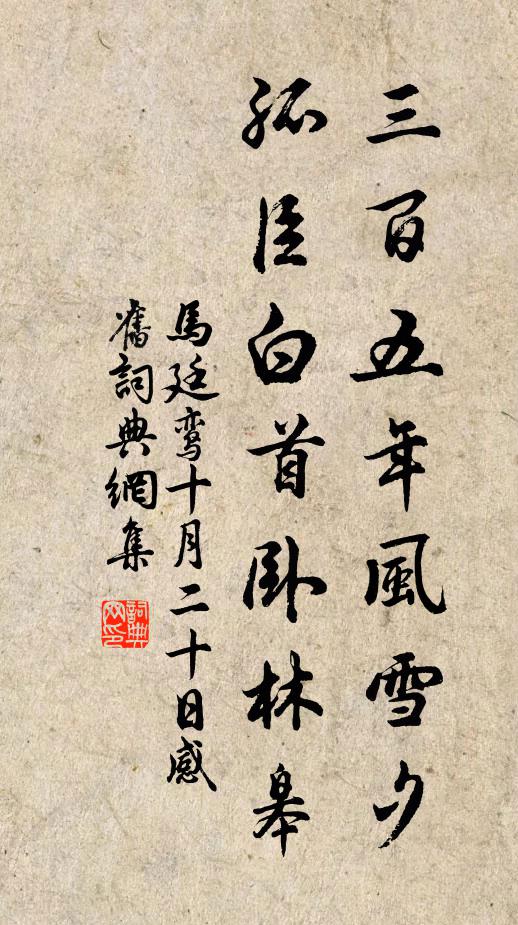 三百五年風雪夕
孤臣白首卧林皋
馬廷鸾十月二十日感
舊詞典網集
詞典网印